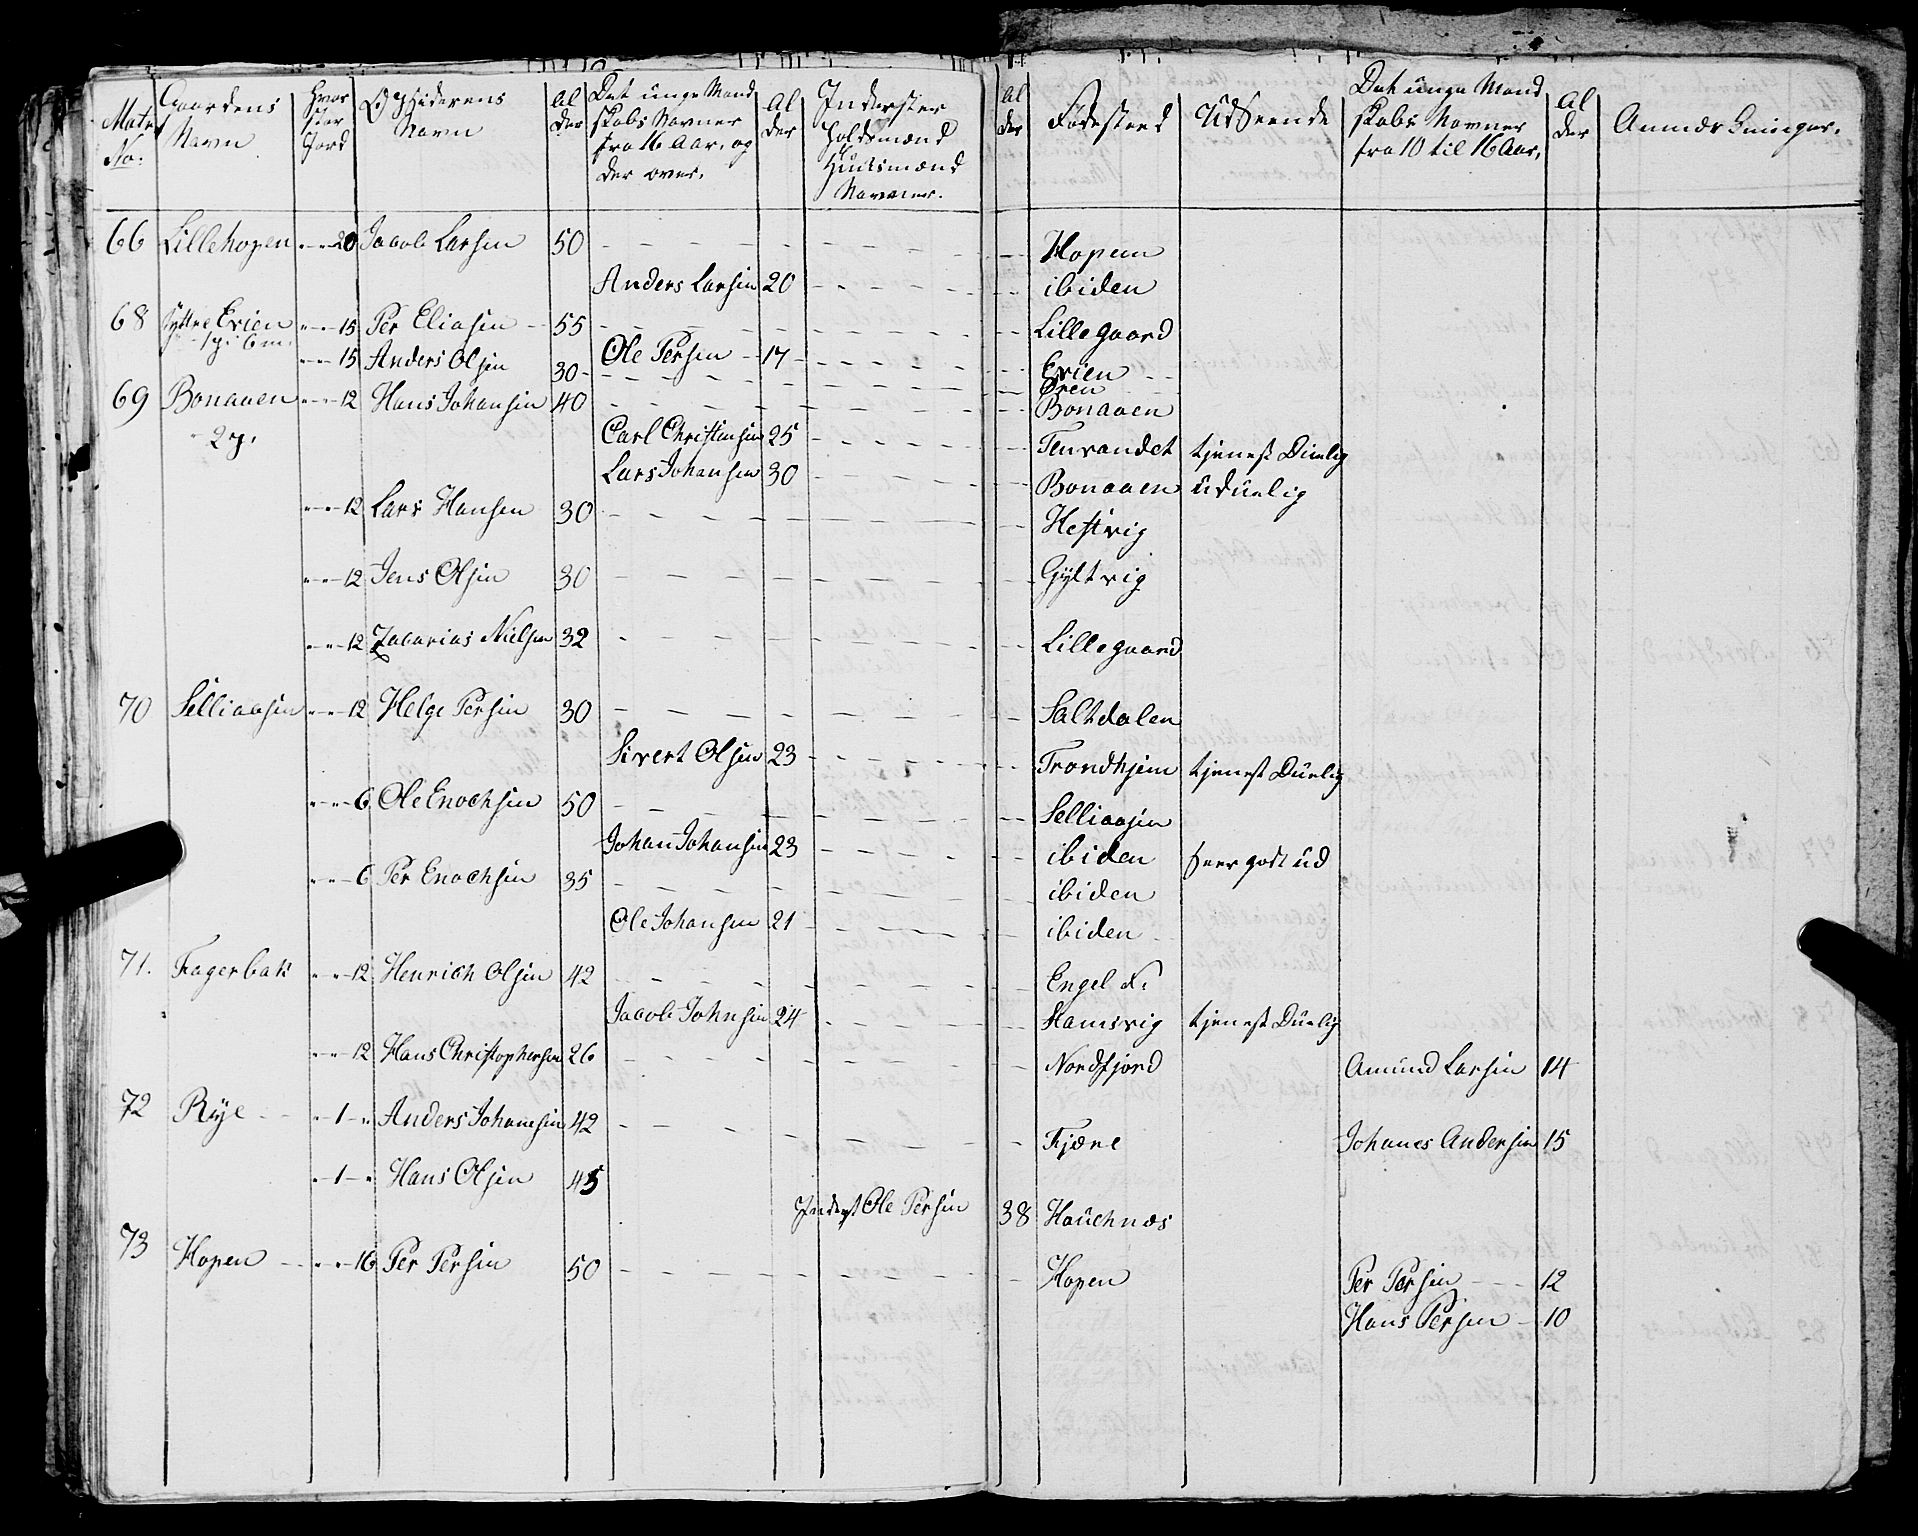 Matr No. | Gaardens Navn | Hvor stor Jord | Opsiderens Navn | Alder | Det unge Mandskabs Navner fra 16 Aar, og der over. | Alder | Inderster Holdsmænd Huusmænd Navner. | Alder | Fødested | Udseende | Det unge Mandskabs Navner fra 10 til 16 Aar, | Alder | Anmærkninger.
66 Lillehopen " - " - 20 Jacob Larsen 50 - - - Hopen
Anders Larsen 20 - - - ibiden
68 Yttre Evien " - " - 15 Per Eliasen - 55 - - - Lillegaard
Ole Persen - 17 - - - Evien - -
" - " - 15 Anders Olsen 30 - - - Ören
69 Bonaaen " - " - 12 Hans Johansen 40 - - - Bonaaen
Carl Christensen 25 - - - Tenvandet tjenest Duelig
Lars Johansen 30 - - - Bonaaen uduelig
" - " - 12 Lars Hansen 30 - - - Hestvig
" - " - 12 Jens Olsen 30 - - - Gyltvig
" - " - 12 Zacarias Nielsen 32 - - - Lillegaard
70 Selliaasen " - " - 12 Helge Persen 30 - - - Saltdalen
Sivert Olsen 23 - - - Trondhjem tjenest Duelig
" - " - 6 Ole Enochsen 50 - - - Selliaasen
Johan Johansen 23 - - - ibiden seer godt ud
" - " - 6 Per Enochsen 35 - - - ibiden
Ole Johansen 21 - - - ibiden
71. Fagerbak " - " - 12 Henrich Olsen 42 - - - Engel d:
Jacob Johnsen 24 - - - Hamsvig tjenest Duelig
" - " - 12 Hans Christophersen 26 - - - Nordfjord Amund Larsen 14
72 Rye - - " - 1 - " Anders Johansen 42 - - - Fjære Johanes Andersen 15
" - 1 - " Hans Olsen 45
Inderst Ole Persen 38 Hauchnæs
73 Hopen - - " - " - 16 Per Persen 50 - - - Hopen Per Persen - - - 12
Hans Persen - 10